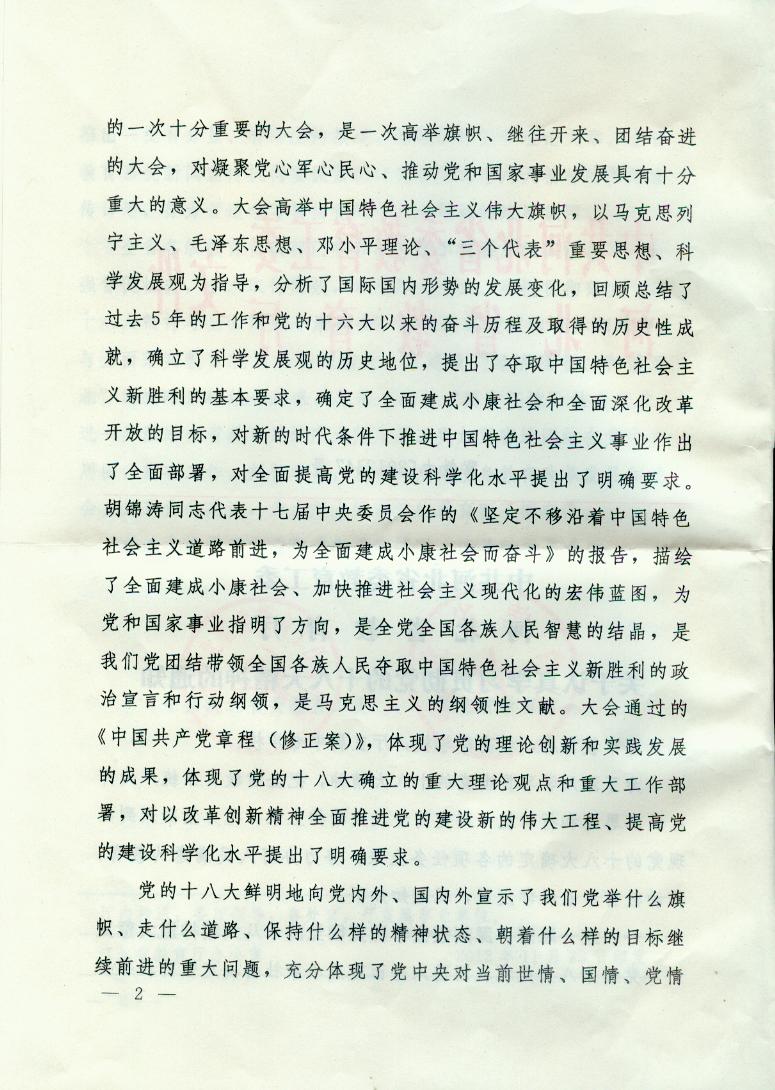 的一次十分重要的大会，是一次高举旗帜、继往开来、团结奋进
的大会，对凝聚党心军心民心、推动党和国家事业发展具有十分
重大的意义。大会高举中国特色社会主义伟大旗帜，以马克思列
宁主义、毛泽东思想、邓小平理论、“三个代表”重要思想、科
学发展观为指导，分析了国际国内形势的发展变化，回顾总结了
过去5年的工作和党的十六大以来的奋斗历程及取得的历史性成
就，确立了科学发展观的历史地位，提出了夺取中国特色社会主
义新胜利的基本要求，确定了全面建成小康社会和全面深化改革
开放的目标，对新的时代条件下推进中国特色社会主义事业作出
了全面部署，对全面提高党的建设科学化水平提出了明确要求。
胡锦涛同志代表十七届中央委员会作的《坚定不移沿着中国特色
社会主义道路前进，为全面建成小康社会而奋斗》的报告，描绘
了全面建成小康社会、加快推进社会主义现代化的宏伟蓝图，为
党和国家事业指明了方向，是全党全国各族人民智慧的结晶，是
我们党团结带领全国各族人民夺取中国特色社会主义新胜利的政
治宣言和行动纲领，是马克思主义的纲领性文献。大会通过的
《中国共产党章程（修正案）》，体现了党的理论创新和实践发展
的成果，体现了党的十八大确立的重大理论观点和重大工作部
署，对以改革创新精神全面推进党的建设新的伟大工程、提高党
的建设科学化水平提出了明确要求。
党的十八大鲜明地向党内外、国内外宣示了我们党举什么旗
帜、走什么道路、保持什么样的精神状态、朝着什么样的目标继
续前进的重大问题，充分体现了党中央对当前世情、国情、党情
— 2 —